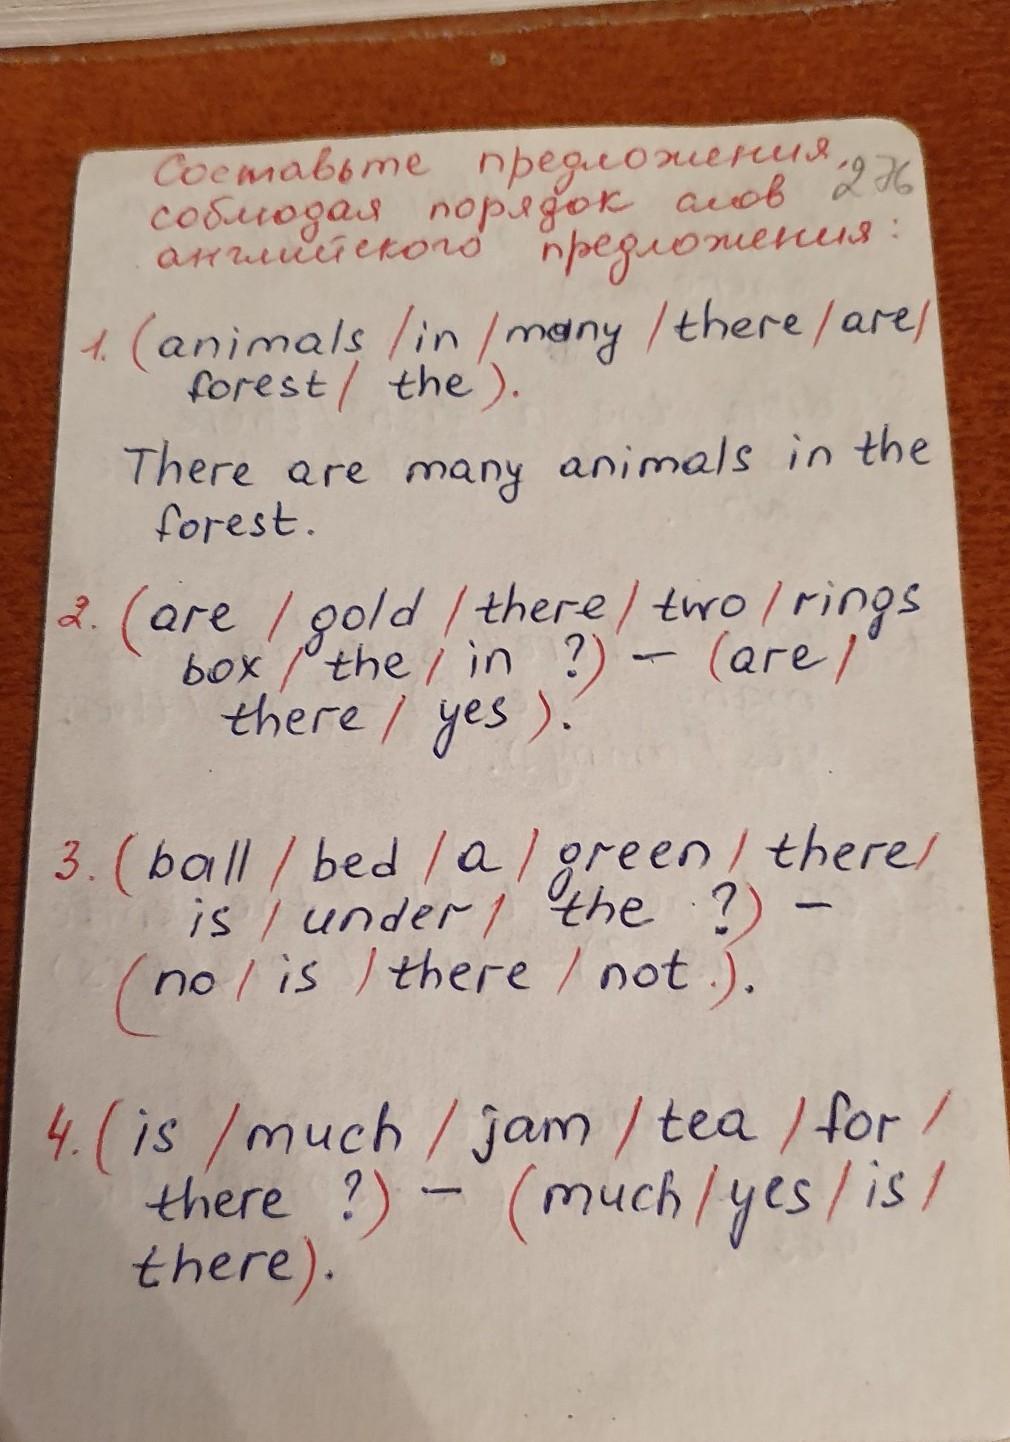 Составьте предложения,
соблюдая порядок слов
английского предложения:
1. (animals / in / many / there / are /
forest / the ).
There are many animals in the
forest.
2. (are / gold / there / two / rings
box / the / in ?) – (are /
there / yes ).
3. ( ball / bed / a / green / there /
is / under / the ?) –
(no / is / there / not.).
4. ( is / much / jam / tea / for /
there ?) – (much / yes / is /
there).